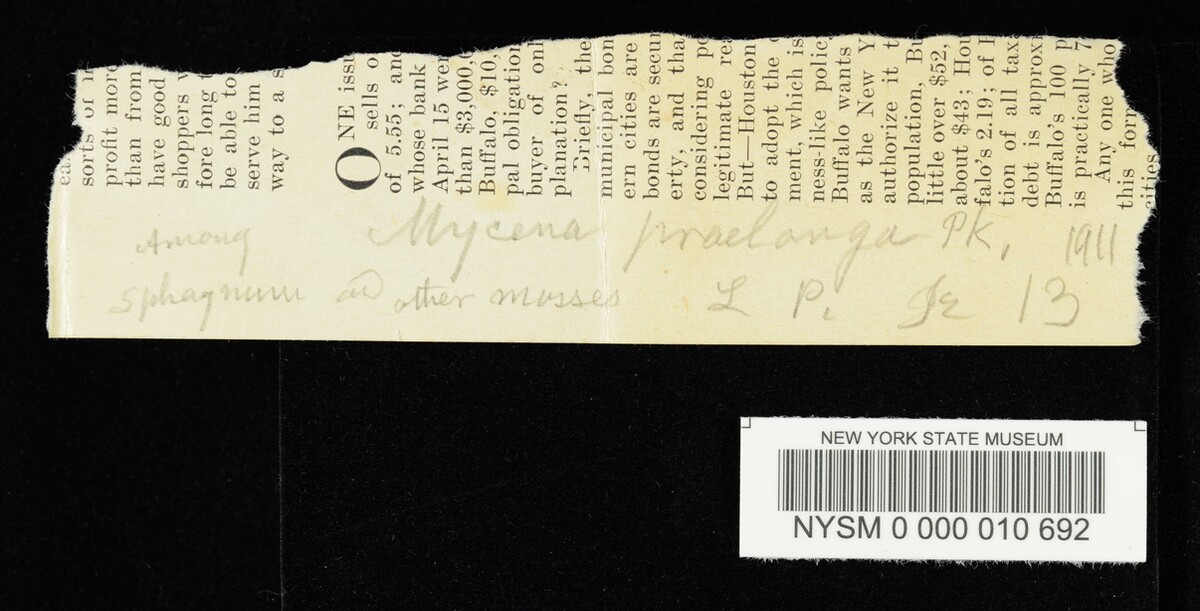 sorts of
profit more
than from
have good
shoppers
fore long
be able to
serve him
way to a s
ONE issu
sells o
of 5.55; and
whose bank
April 15 wer
than $3,000,
Buffalo, $10,
pal obligation
buyer of onl
planation?
Briefly, the
municipal bon
ern cities are
bonds are secur
erty, and tha
considering po
legitimate rea
But—Houston
to adopt the
ment, which is
ness-like polic
Buffalo wants
as the New Y
authorize it t
population, Bu
little over $52,
about $43; Hou
falo's 2.19; of
tion of all taxa
debt is approxi
Buffalo's 100 p
is practically 7
Any one who
this form
cities
Mycena praelonga Pk. 1911
Among
Sphagnum and other mosses L P. Je 13
NEW YORK STATE MUSEUM
NYSM 0 000 010 692